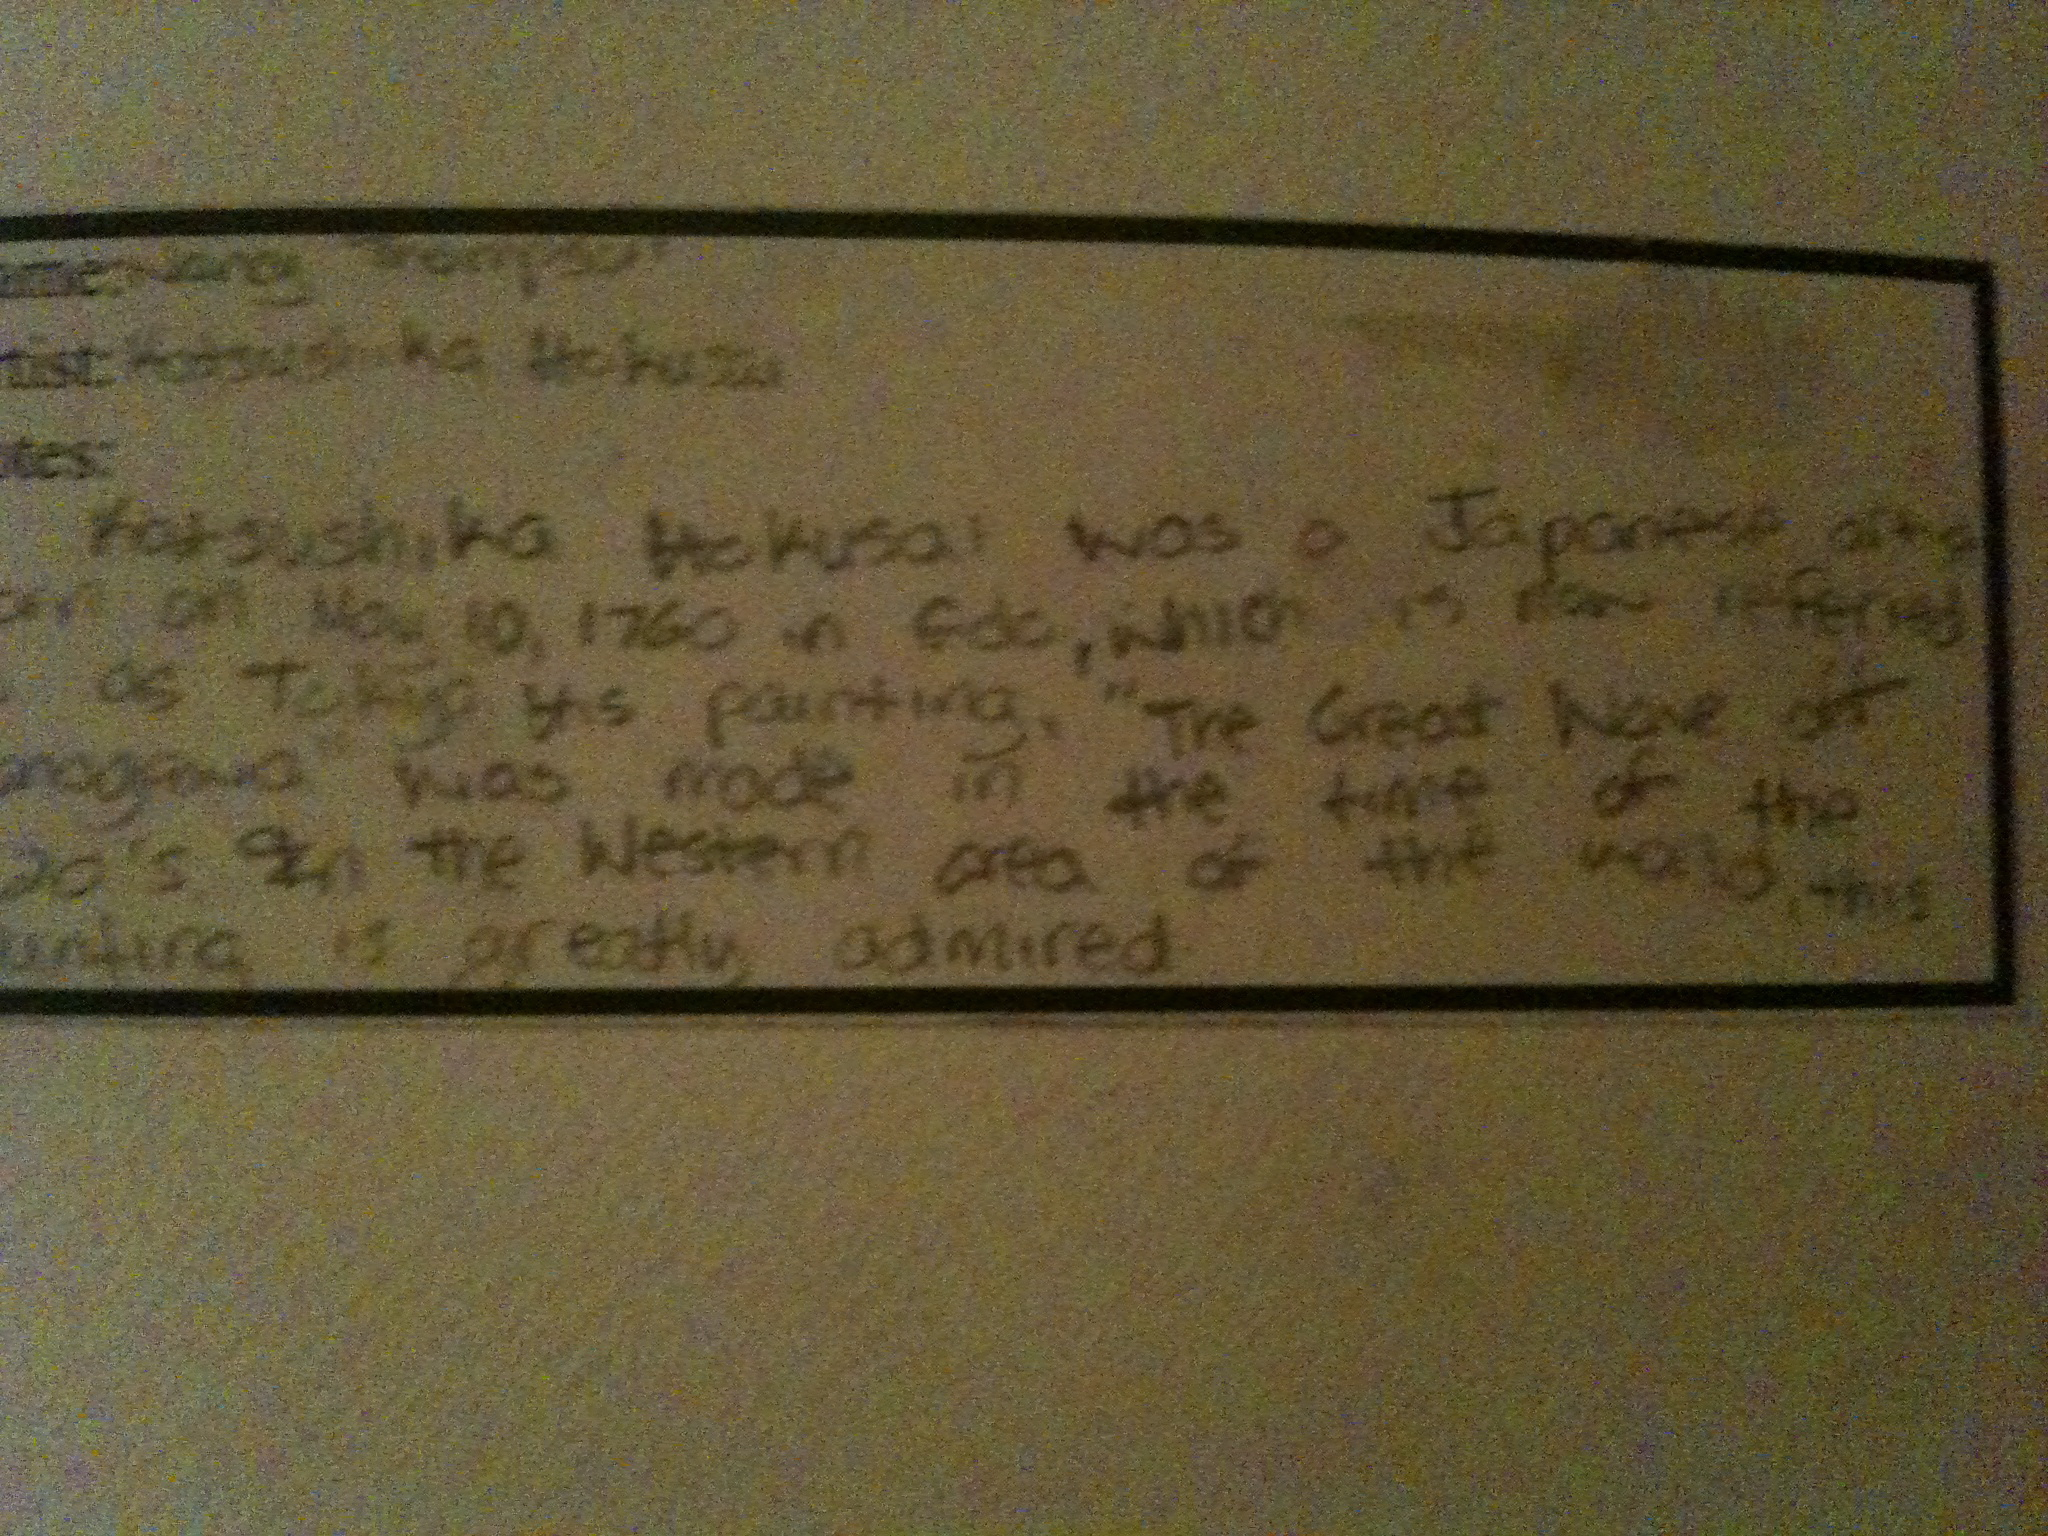 Katsushika Hokusai
tes:
Katsushika Hokusai was a Japanese
on Nov 10, 1760 in Edo, which is now referred
as Tokyo His painting, "The Great Wave off
anagawa" was made in the time of the
20's In the Western area of the world, this
ainting is greatly admired